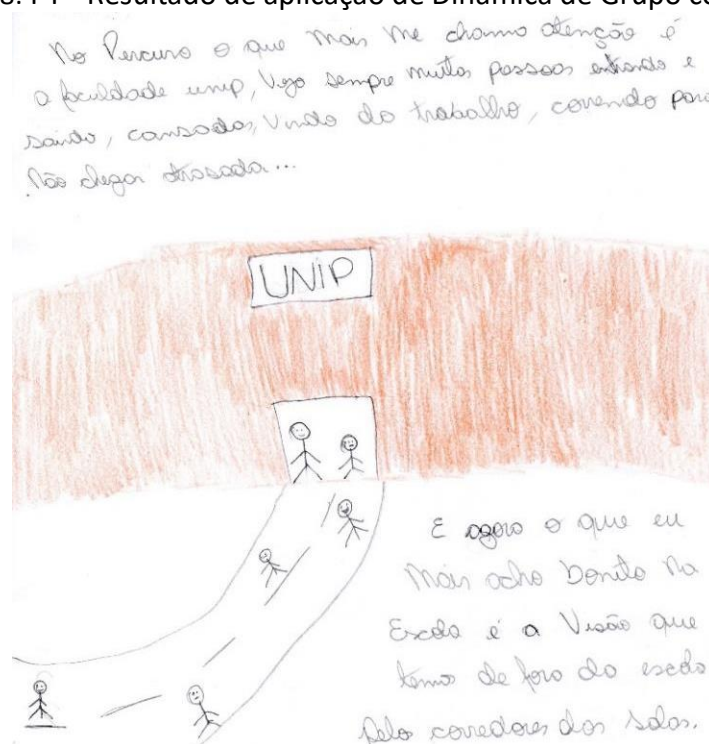 Resultado de aplicação de Dinâmica de Grupo co
No Percurso o que mais me chama atenção é
a faculdade unip, Vejo sempre muitas pessoas entrando e
saindo, cansadas, Vindo do trabalho, correndo para
Não chegar atrasada...
UNIP
E agora o que eu
mais acho bonito na
Escola é a Visão que
temos de fora da escola
Pelos corredores das salas.